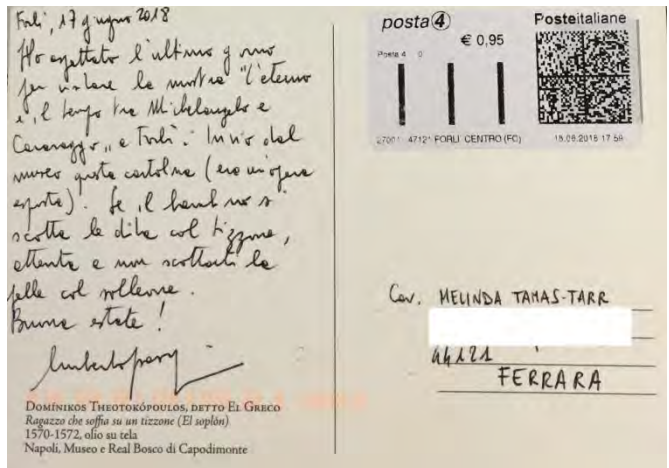 Forlì, 17 giugno 2018
Ho aspettato l'ultimo giorno
per visitare la mostra "L'eterno
e il tempo tra Michelangelo e
Caravaggio„ a Forlì. Invio dal
museo questa cartolina (era un'opera
esposta). Se il bambino si
scotta le dita col tizzone,
attenta a non scottarti la
pelle col solleone.
Buona estate!
DOMÍNIKOS THEOTOKÓPOULOS, DETTO EL GRECO
Ragazzo che soffia su un tizzone (El soplón)
1570-1572, olio su tela
Napoli, Museo e Real Bosco di Capodimonte
posta 4
Posteitaliane
€ 0,95
Posta 4 0
47121 FORLI' CENTRO (FC)
18.06.2018 17.59
Cav. MELINDA TAMAS-TARR
44121
FERRARA